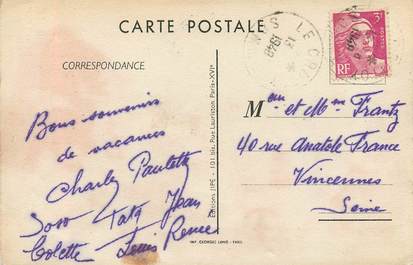 CARTE POSTALE
CORRESPONDANCE
Bons souvenirs
de vacances
Charley Paulette
Soso Taty Jean
Colette Louis Renée
Editions JIPE - 101 bis, Rue Lauriston Paris-XVIe
IMP. GEORGES LANG - PARIS
LE CR
1949
3F
RF
POSTES
Mr et Mme Frantz
40 rue Anatole France
Vincennes
Seine